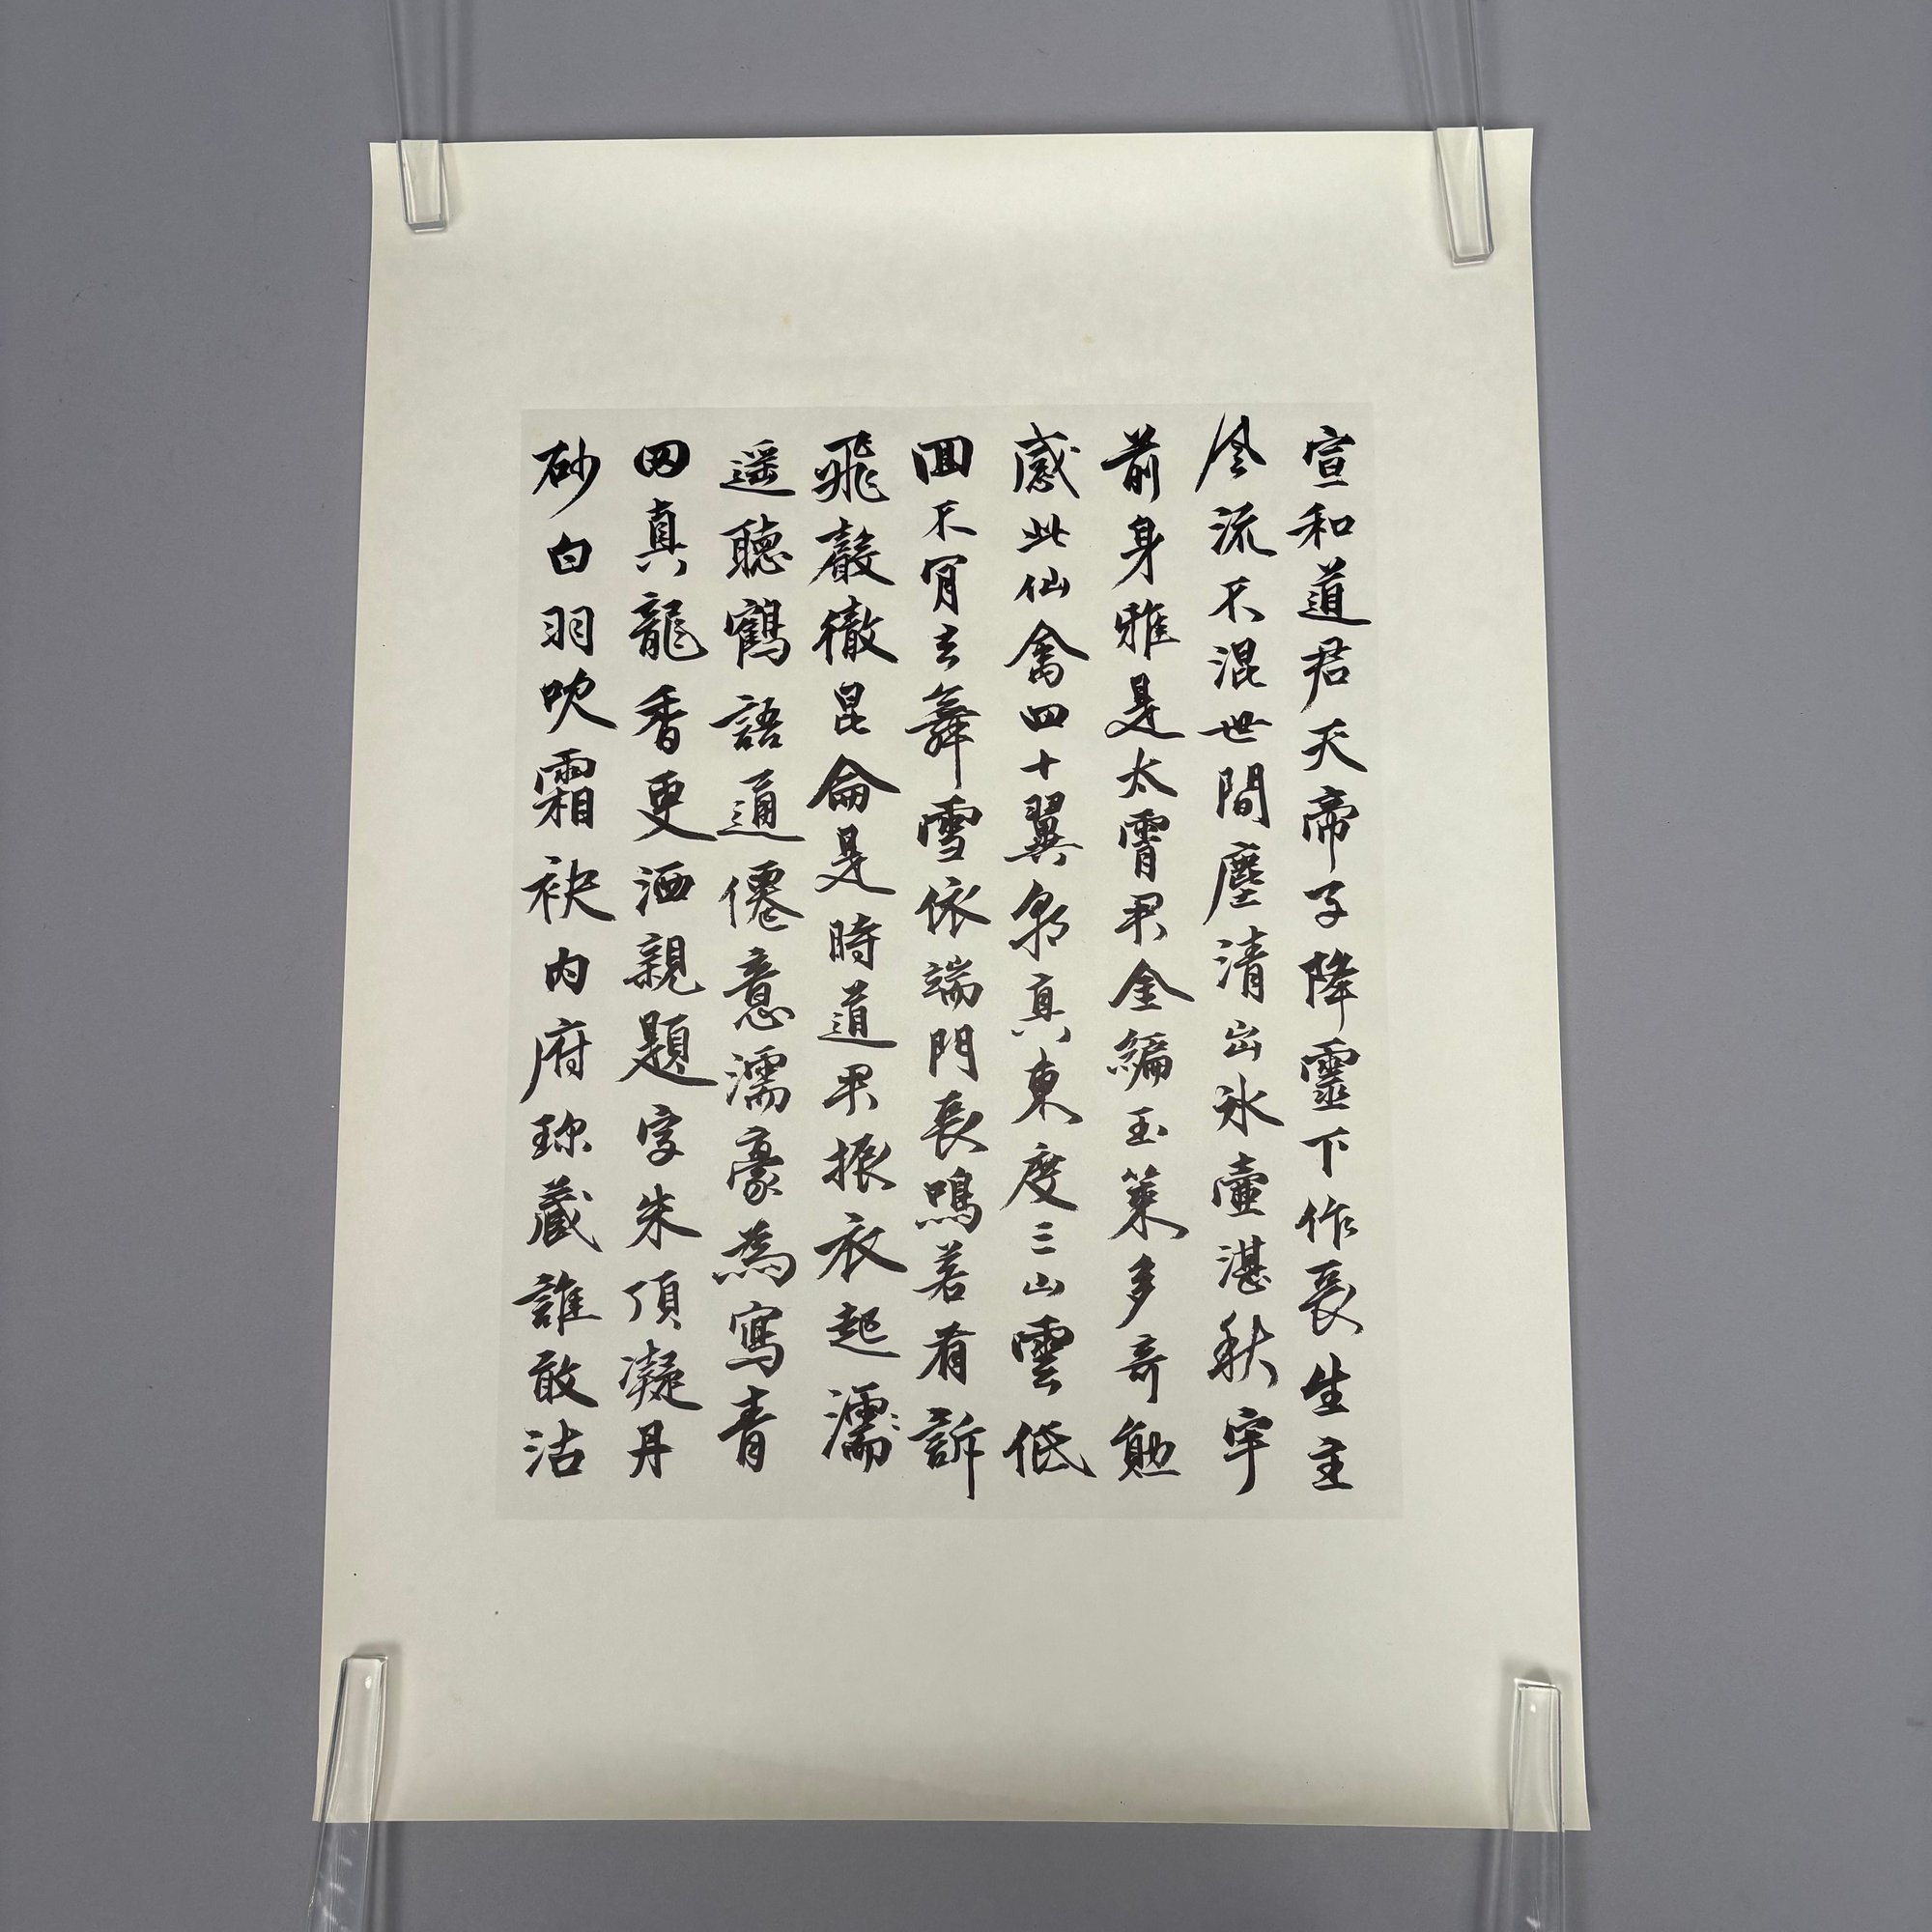 宣和道君天帝子降靈下作長生主
風流不混世間塵清出冰壺湛秋宇
前身雅是太霄君金編玉策多奇勛
感此仙禽四十翼朝真東度三山雲低
回不肎去舞雪依端門長鳴若有訴
飛聲徹昆侖是時道君振衣起濡
遥聽鶴語通僊意濡豪為寫青
田真龍香更洒親題字朱頂凝丹
砂白羽吹霜袂内府珎藏誰敢沽